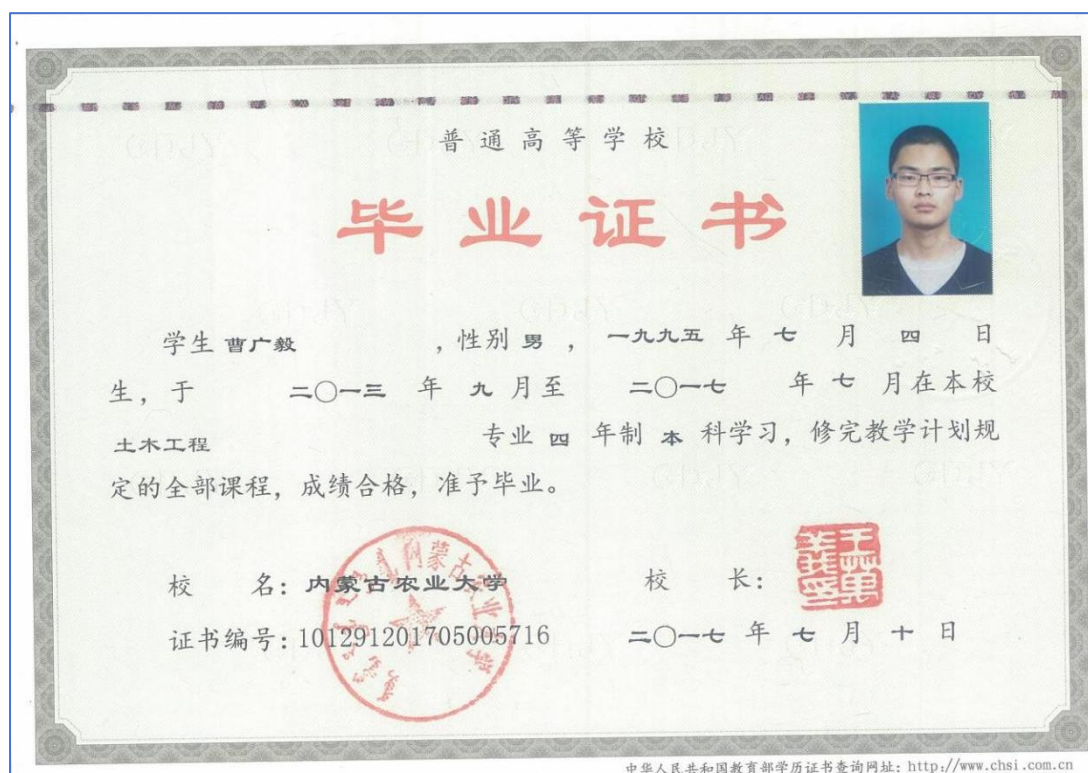 普通高等学校
毕业证书
学生 曹广毅 ，性别 男 ， 一九九五 年 七 月 四 日
生，于 二〇一三 年 九 月至 二〇一七 年 七 月在本校
土木工程 专业 四 年制 本 科学习，修完教学计划规
定的全部课程，成绩合格，准予毕业。
校 名：内蒙古农业大学 校 长：
内蒙古农业大学
证书编号：101291201705005716 二〇一七 年 七 月 十 日
中华人民共和国教育部学历证书查询网址：http://www.chsi.com.cn